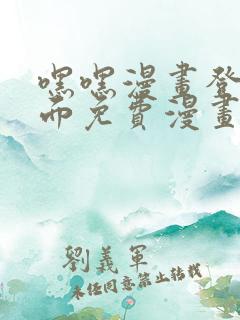 嘿嘿漫畫登
而免費漫畫
劉義軍
未经同意禁止转载